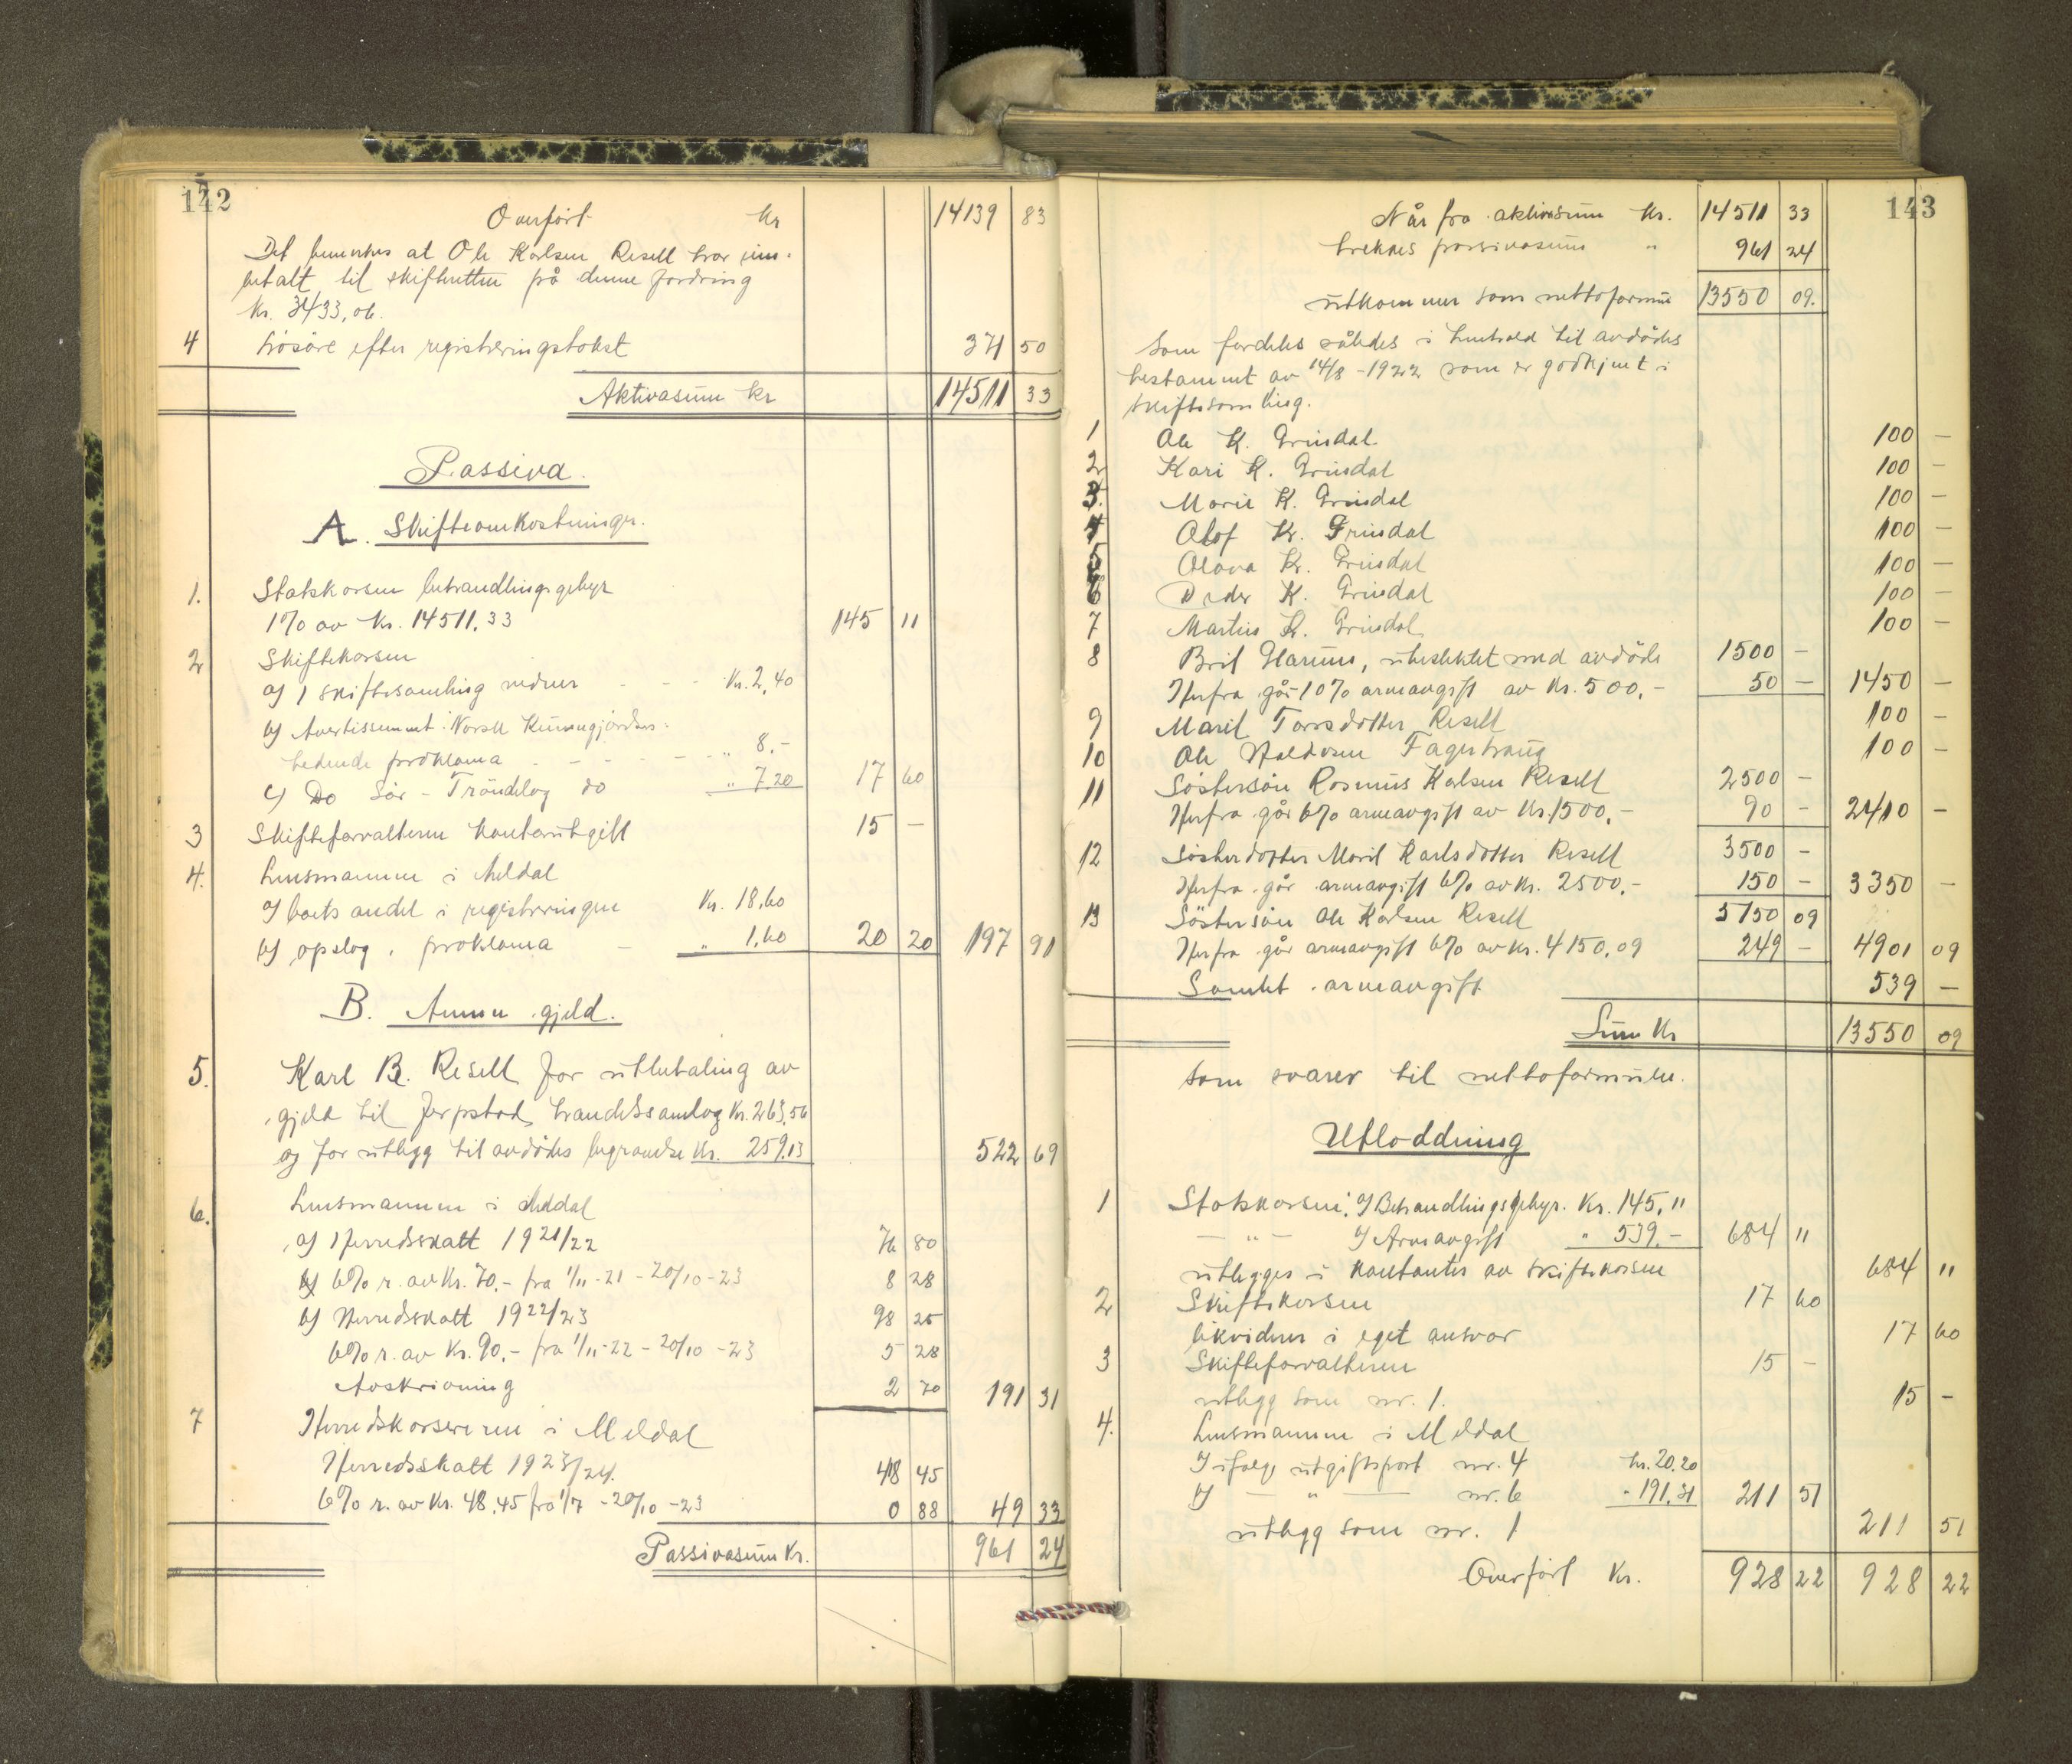 142
Overført kr 14139 83
Det bemerkes at Ole Karlsen Resell har inn-
betalt til skifteretten på denne fordring
kr. 3433,06.
4 Løsøre efter registreringstakst 371 50
Aktivasum kr 14511 33
Passiva.
A. Skifteomkostninger.
1. Statskassen behandlingsgebyr
1% av kr. 14511.33 145 11
2 Skiftekassen
a) 1 skiftesamling - - - kr. 2,40
b) Avertissement i Norsk Kunngjørelses:
tidende proklama - - - - - " 8.-
c) Do Sør-Trøndelag do " 7.20 17 60
3 Skifteforvalteren kontorutgift 15 -
4. Lensmannen i Meldal
a) boets andel i registreringen kr. 18,60
b) opslag, proklama - " 1,60 20 20 197 91
B. Annen gjeld.
5. Karl B. Resell for utbetaling av
gjeld til Jerpstad handelssamlag kr. 263,56
og for utlegg til avdødes begravelse kr. 259.13 522 69
6. Lensmannen i Meldal
a) Herredsskatt 1921/22 76 80
6% r. av kr. 70.- fra 1/11-21 - 20/10-23 8 28
b) Herredsskatt 1922/23 98 25
6% r. av kr. 90.- fra 1/11-22 - 20/10-23 5 28
Avskrivning 2 70 191 31
7 Herredskassereren i Meldal
Herredsskatt 1923/24. 48 45
6% r. av kr. 48.45 fra 1/7 - 20/10-23 0 88 49 33
Passivasum kr. 961 24
143
Når fra aktivasum kr. 14511 33
trekkes passivasum " 961 24
utkommer som nettoformue 13550 09.
som fordeles således i henhold til avdødes
testament av 14/8-1922 som er godkjent i
skiftesamling.
1 Ole K. Grindal 100 -
2 Kari K. Grindal 100 -
3. Marie K. Grindal 100 -
4 Olof Kr. Grindal 100 -
5 Olava Kr. Grindal 100 -
6 Peder K. Grindal 100 -
7 Martin K. Grindal 100 -
8 Brit Harum, ubeslektet med avdøde 1500 -
Herfra går 10% arveavgift av kr. 500.- 50 - 1450 -
9 Marit Tørsdotter Resell 100 -
10 Ole Haldosen Fagerhaug 100 -
11 Søstersøn Rasmus Kalsen Resell 2500 -
Herfra går 6% arveavgift av kr. 1500.- 90 - 2410 -
12 Søsterdotter Marit Karlsdotter Resell 3500 -
Herfra går arveavgift 6% av kr. 2500.- 150 - 3350 -
13 Søstersøn Ole Karlsen Resell 5150 09
Herfra går arveavgift 6% av kr. 4150.09 249 - 4901 09
Samlet arveavgift 539 -
Sum kr 13550 09
som svarer til nettoformuen.
Utloddning
1 Statskassen: a) Behandlingsgebyr. kr. 145,11
- " - b) Arveavgift " 539.- 684 11
utlegges i kontanter av skiftekassen 684 11
2 Skiftekassen 17 60
likviderer i eget ansvar 17 60
3 Skifteforvalteren 15 -
utlegg som nr. 1. 15 -
4. Lensmannen i Meldal
a) ifølge utgiftspost nr. 4 kr. 20.20
b) - " - nr. 6 " 191.31 211 51
utlegg som nr. 1 211 51
Overført kr. 928 22 928 22